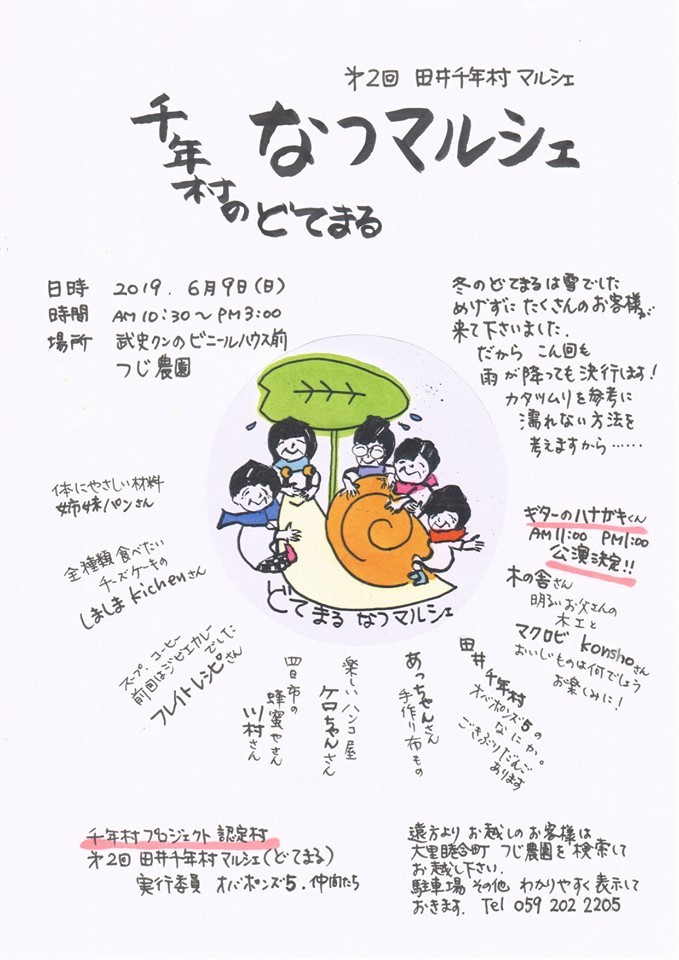 第2回 田井千年村 マルシェ
千年村の
なつマルシェ
どてまる
日時 2019. 6月9日(日)
時間 AM10:30～PM3:00
場所 武史クンのビニールハウス前
つじ農園
冬のどてまるは雪でした
めげずにたくさんのお客様が
来て下さいました.
だから こん回も
雨が降っても決行します!
カタツムリを参考に
濡れない方法を
考えますから……
体にやさしい材料
姉妹パンさん
全種類食べたい
チーズケーキの
しましまkichenさん
スープ.コーヒー
前回はジビエカレー
でした
フレイトレシピさん
四日市の
蜂蜜やさん
川村さん
楽しいハンコ屋
ケロちゃんさん
あっちゃんさん
手作り布もの
田井千年村
オバポンズ5の
なにか。
ごきぶりだんご
あります
ギターのハナガキくん
AM11:00 PM1:00
公演決定!!
木の舎さん
明るいお父さんの
木工と
マクロビ konshoさん
おいしいものは何でしょう
お楽しみに!
どてまる なつマルシェ
千年村プロジェクト 認定村
第2回 田井千年村マルシェ(どてまる)
実行委員 オバポンズ5.仲間たち
遠方より お越しのお客様は
大里睦合町 つじ農園を検索して
お越し下さい.
駐車場 その他 わかりやすく表示して
おきます. Tel 059 202 2205